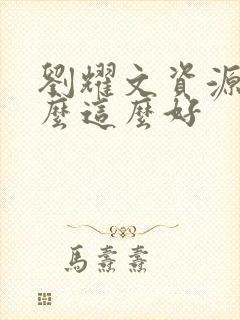 劉耀文資源
麼這麼好
馬熹熹